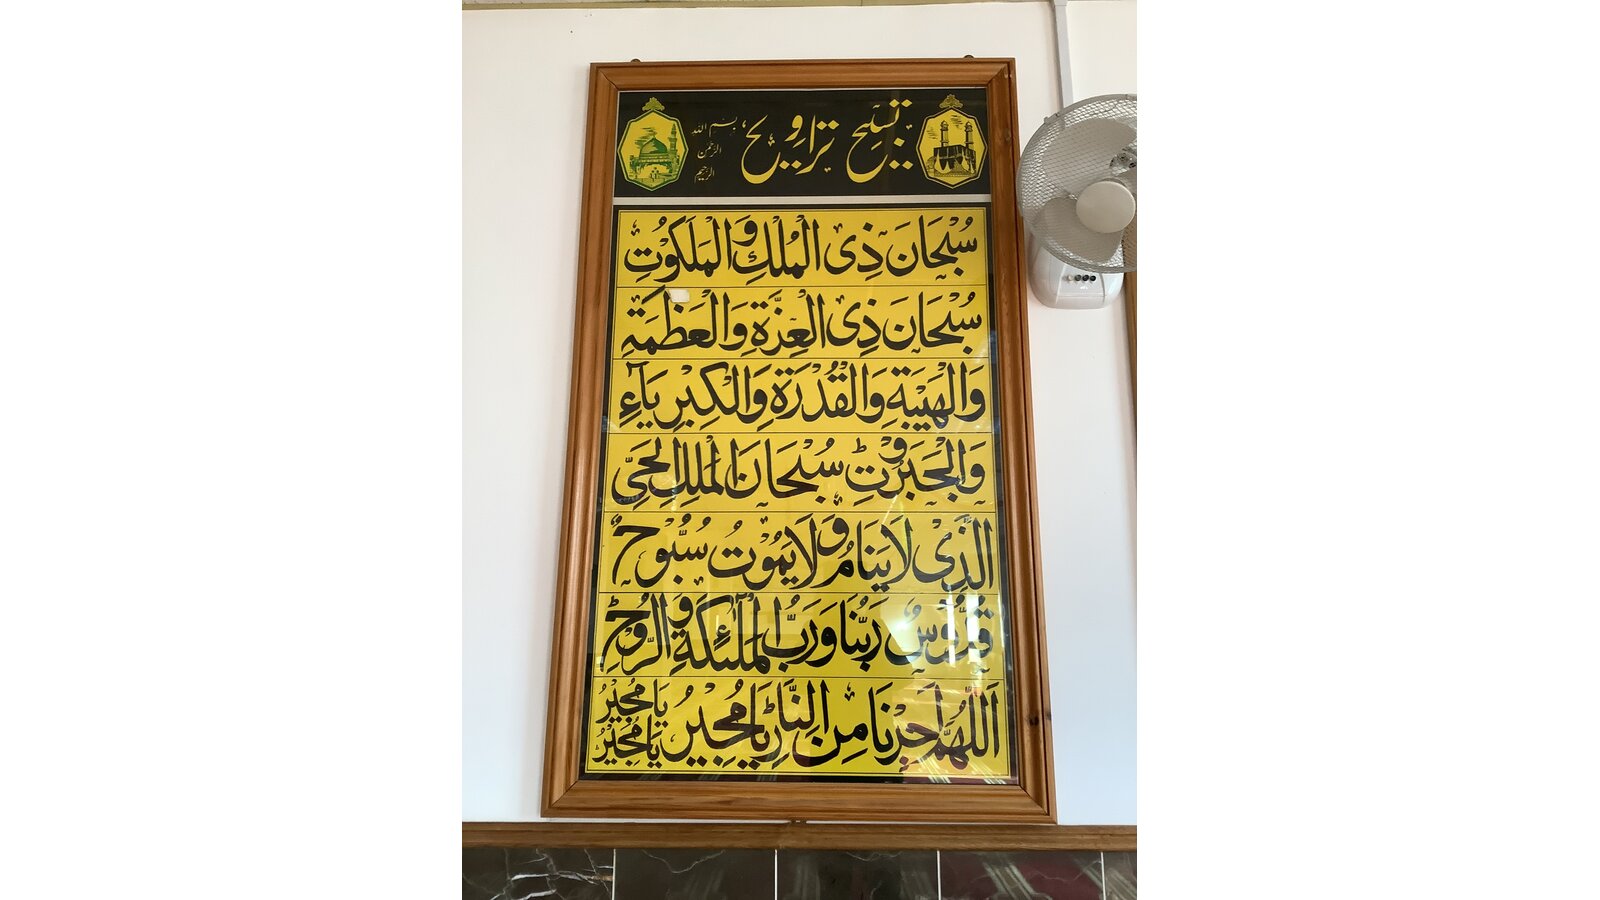 تسبیح تراویح
بسم الله
الرحمن
الرحیم
سُبْحَانَ ذِی الْمُلْكِ وَالْمَلَكُوْتِ
سُبْحَانَ ذِی الْعِزَّةِ وَالْعَظَمَةِ
وَالْهَيْبَةِ وَالْقُدْرَةِ وَالْكِبْرِيَآءِ
وَالْجَبَرُوْتِ سُبْحَانَ الْمَلِكِ الْحَیِّ
الَّذِی لَا يَنَامُ وَلَا يَمُوْتُ سُبُّوْحٌ
قُدُّوْسٌ رَبُّنَا وَرَبُّ الْمَلٰٓئِكَةِ وَالرُّوْحِ
اَللّٰهُمَّ اَجِرْنَا مِنَ النَّارِ يَا مُجِيْرُ يَا مُجِيْرُ
يَا مُجِيْرُ